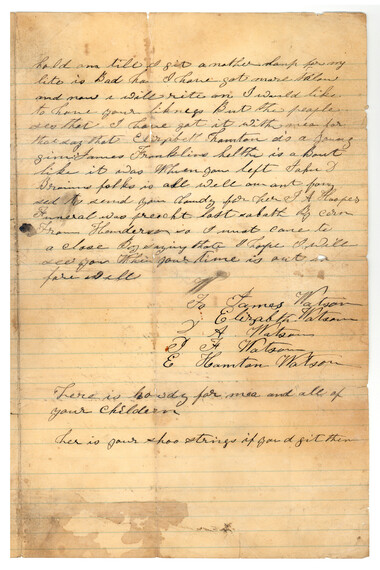 hold on till I get a nother lamp for my
lite is Bad ha I have got more tallow
and now i will rite on I would like
to have your likness But the people
ses that I have got it with mea for
tha say that Elizabeth Hamton is a young
gim James Franklins helthe is a Bout
like it was When you left
folks is all well
to send you howdy for her
Funeral was preacht last sabath By
Henderson so I must come to
a close By saying that I hope I will
see you When your time is out
fare Well
To James Watson
Elizabth Watson
A Watson
F Watson
E Hamton Watson
There is howdy for mea and all of
your childern
her is your shoo strings if you d git them